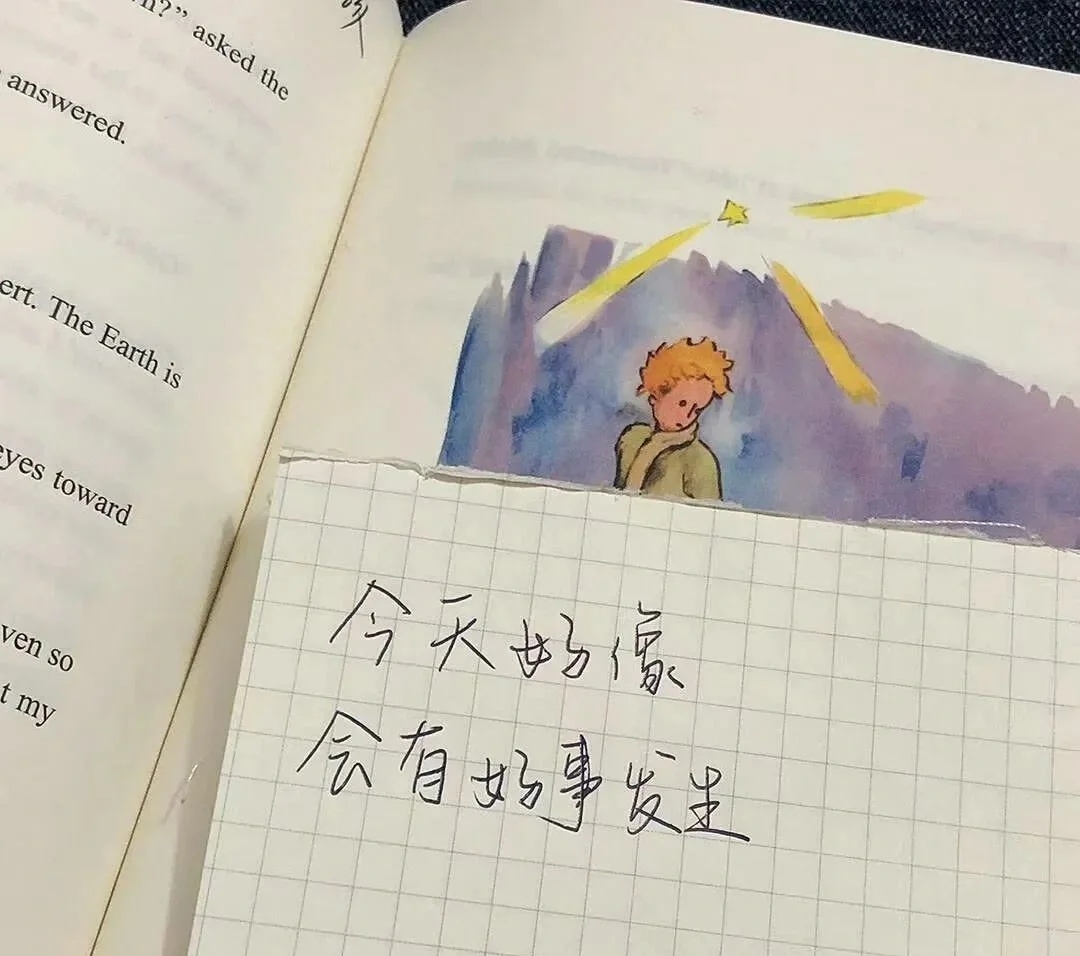 ?” asked the
answered.
The Earth is
eyes toward
so
my
今天好像
会有好事发生